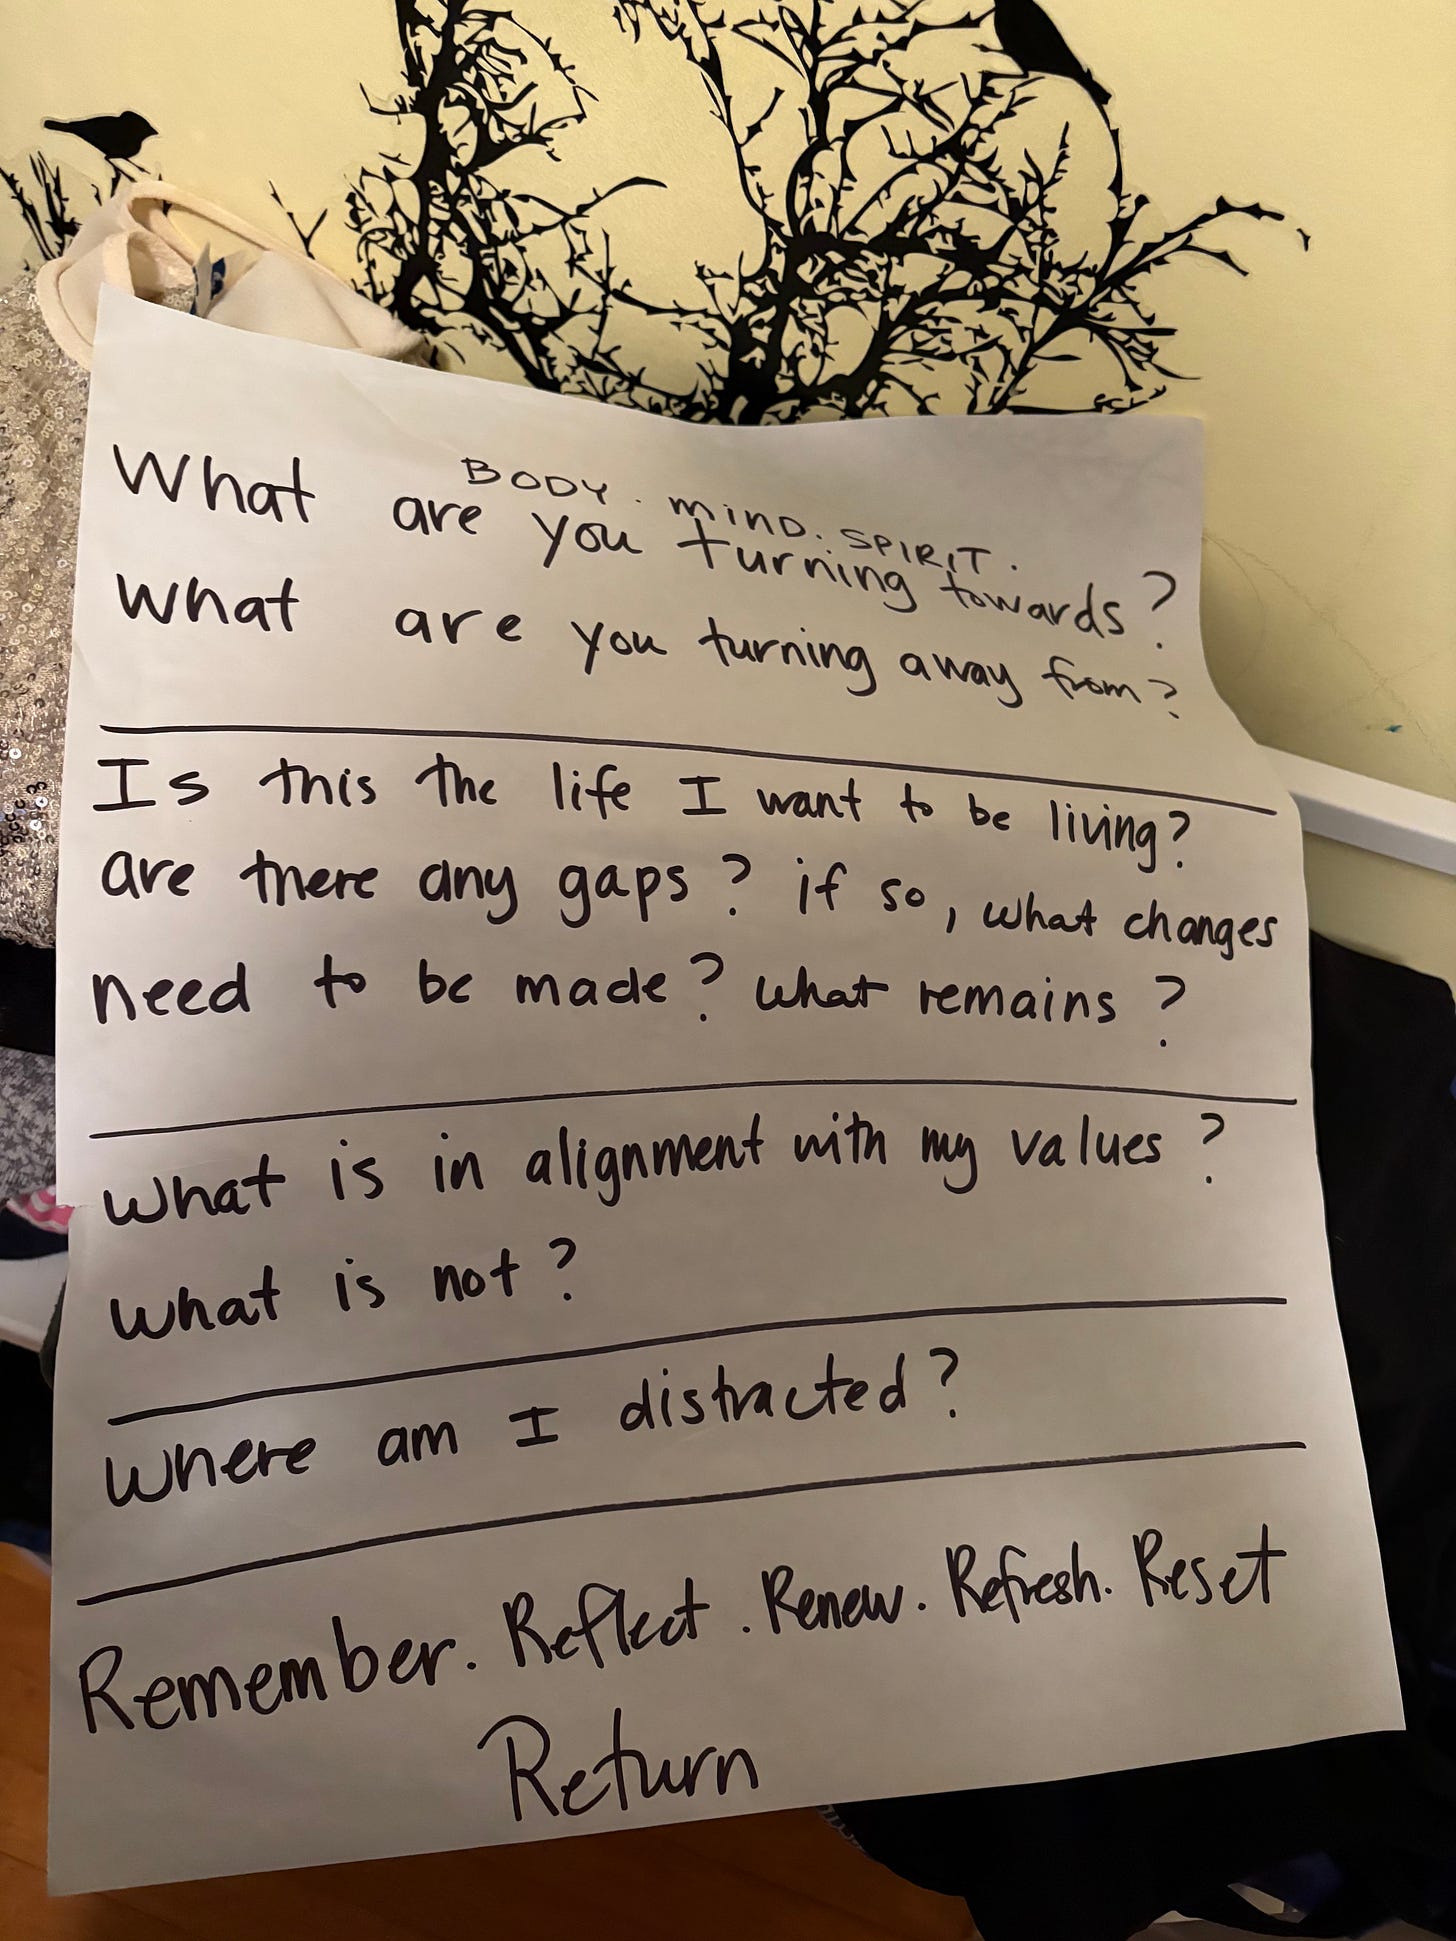 BODY. MIND. SPIRIT.
What are you turning towards?
What are you turning away from?
Is this the life I want to be living?
are there any gaps? if so, what changes
need to be made? what remains?
What is in alignment with my values?
what is not?
Where am I distracted?
Remember. Reflect. Renew. Refresh. Reset
Return